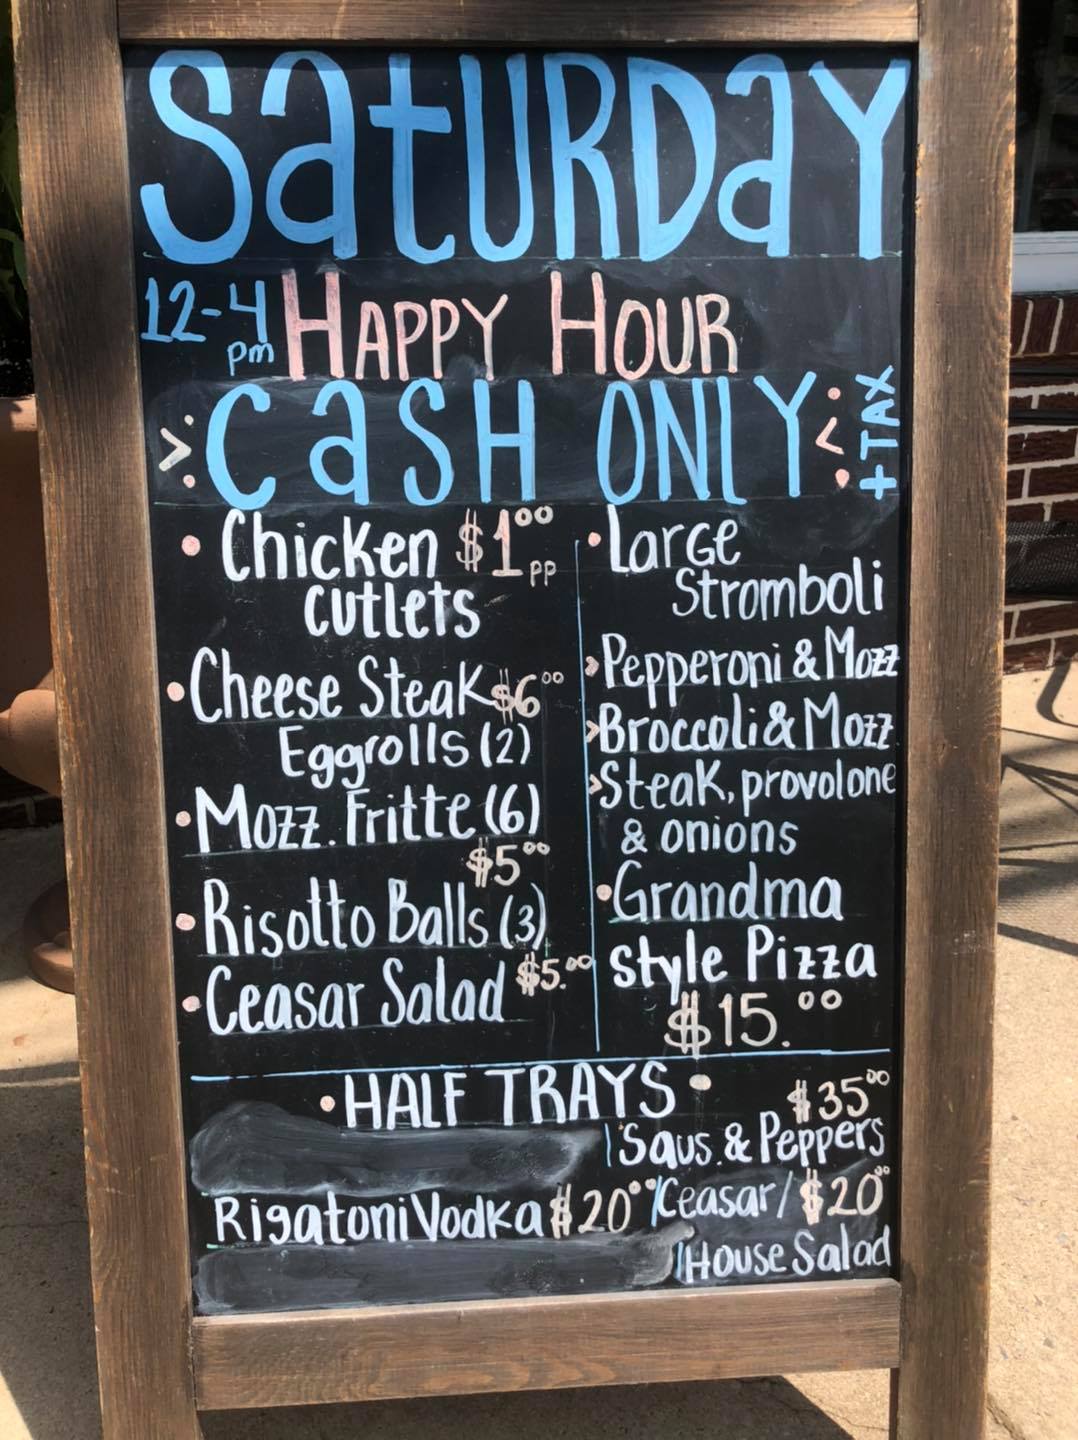 SaTURDaY
12-4 pm HAPPY HOUR
>: CaSH ONLY :< + TAX
• Chicken $1⁰⁰ pp
cutlets
• Cheese Steak $6⁰⁰
Eggrolls (2)
• Mozz. Fritte (6)
$5⁰⁰
• Risotto Balls (3)
$5.⁰⁰
• Ceasar Salad
• Large
Stromboli
> Pepperoni & Mozz
> Broccoli & Mozz
> Steak, provolone
& onions
• Grandma
style Pizza
$15.⁰⁰
• HALF TRAYS •
$35⁰⁰
Saus. & Peppers
Rigatoni Vodka $20⁰⁰
Ceasar/ $20⁰⁰
House Salad